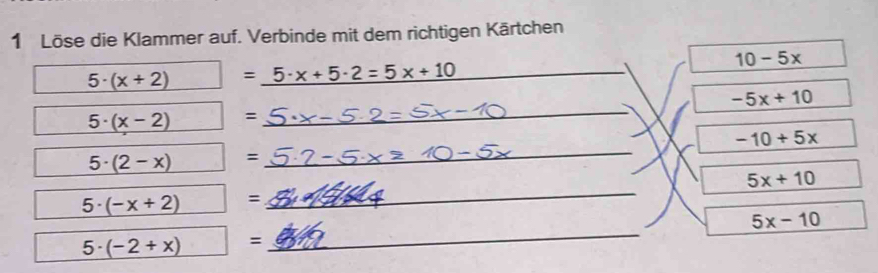 1 Löse die Klammer auf. Verbinde mit dem richtigen Kärtchen
5·(x + 2) = 5·x + 5·2 = 5x + 10
5·(x − 2) = 5·x − 5·2 = 5x − 10
5·(2 − x) = 5·2 − 5·x = 10 − 5x
5·(−x + 2) =
5·(−2 + x) =
10 − 5x
−5x + 10
−10 + 5x
5x + 10
5x − 10